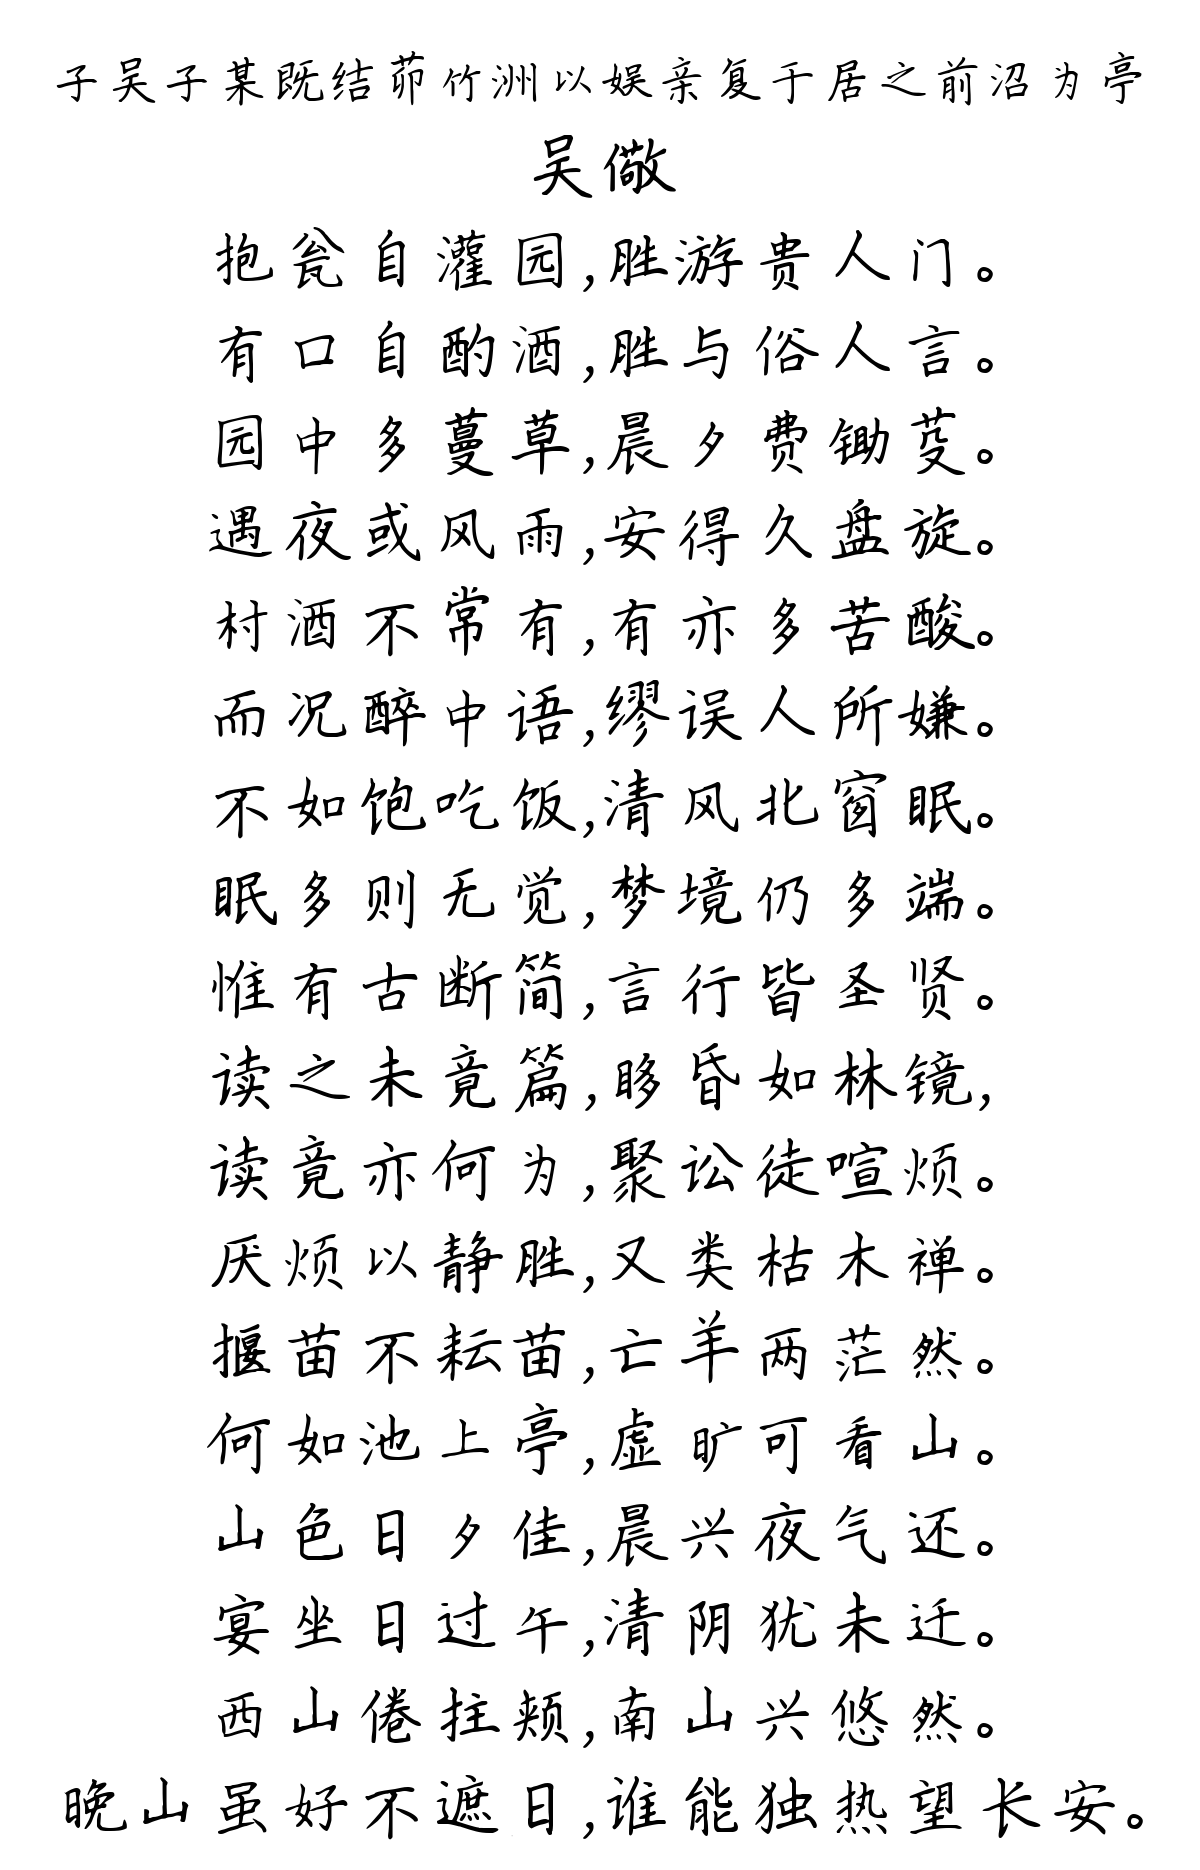 子吴子某既结茆竹洲以娱亲复于居之前沼为亭
吴儆
抱瓮自灌园,胜游贵人门。
有口自酌酒,胜与俗人言。
园中多蔓草,晨夕费锄芟。
遇夜或风雨,安得久盘旋。
村酒不常有,有亦多苦酸。
而况醉中语,缪误人所嫌。
不如饱吃饭,清风北窗眠。
眠多则无觉,梦境仍多端。
惟有古断简,言行皆圣贤。
读之未竟篇,眵昏如林镜,
读竟亦何为,聚讼徒喧烦。
厌烦以静胜,又类枯木禅。
揠苗不耘苗,亡羊两茫然。
何如池上亭,虚旷可看山。
山色日夕佳,晨兴夜气还。
宴坐日过午,清阴犹未迁。
西山倦拄颊,南山兴悠然。
晚山虽好不遮日,谁能独热望长安。